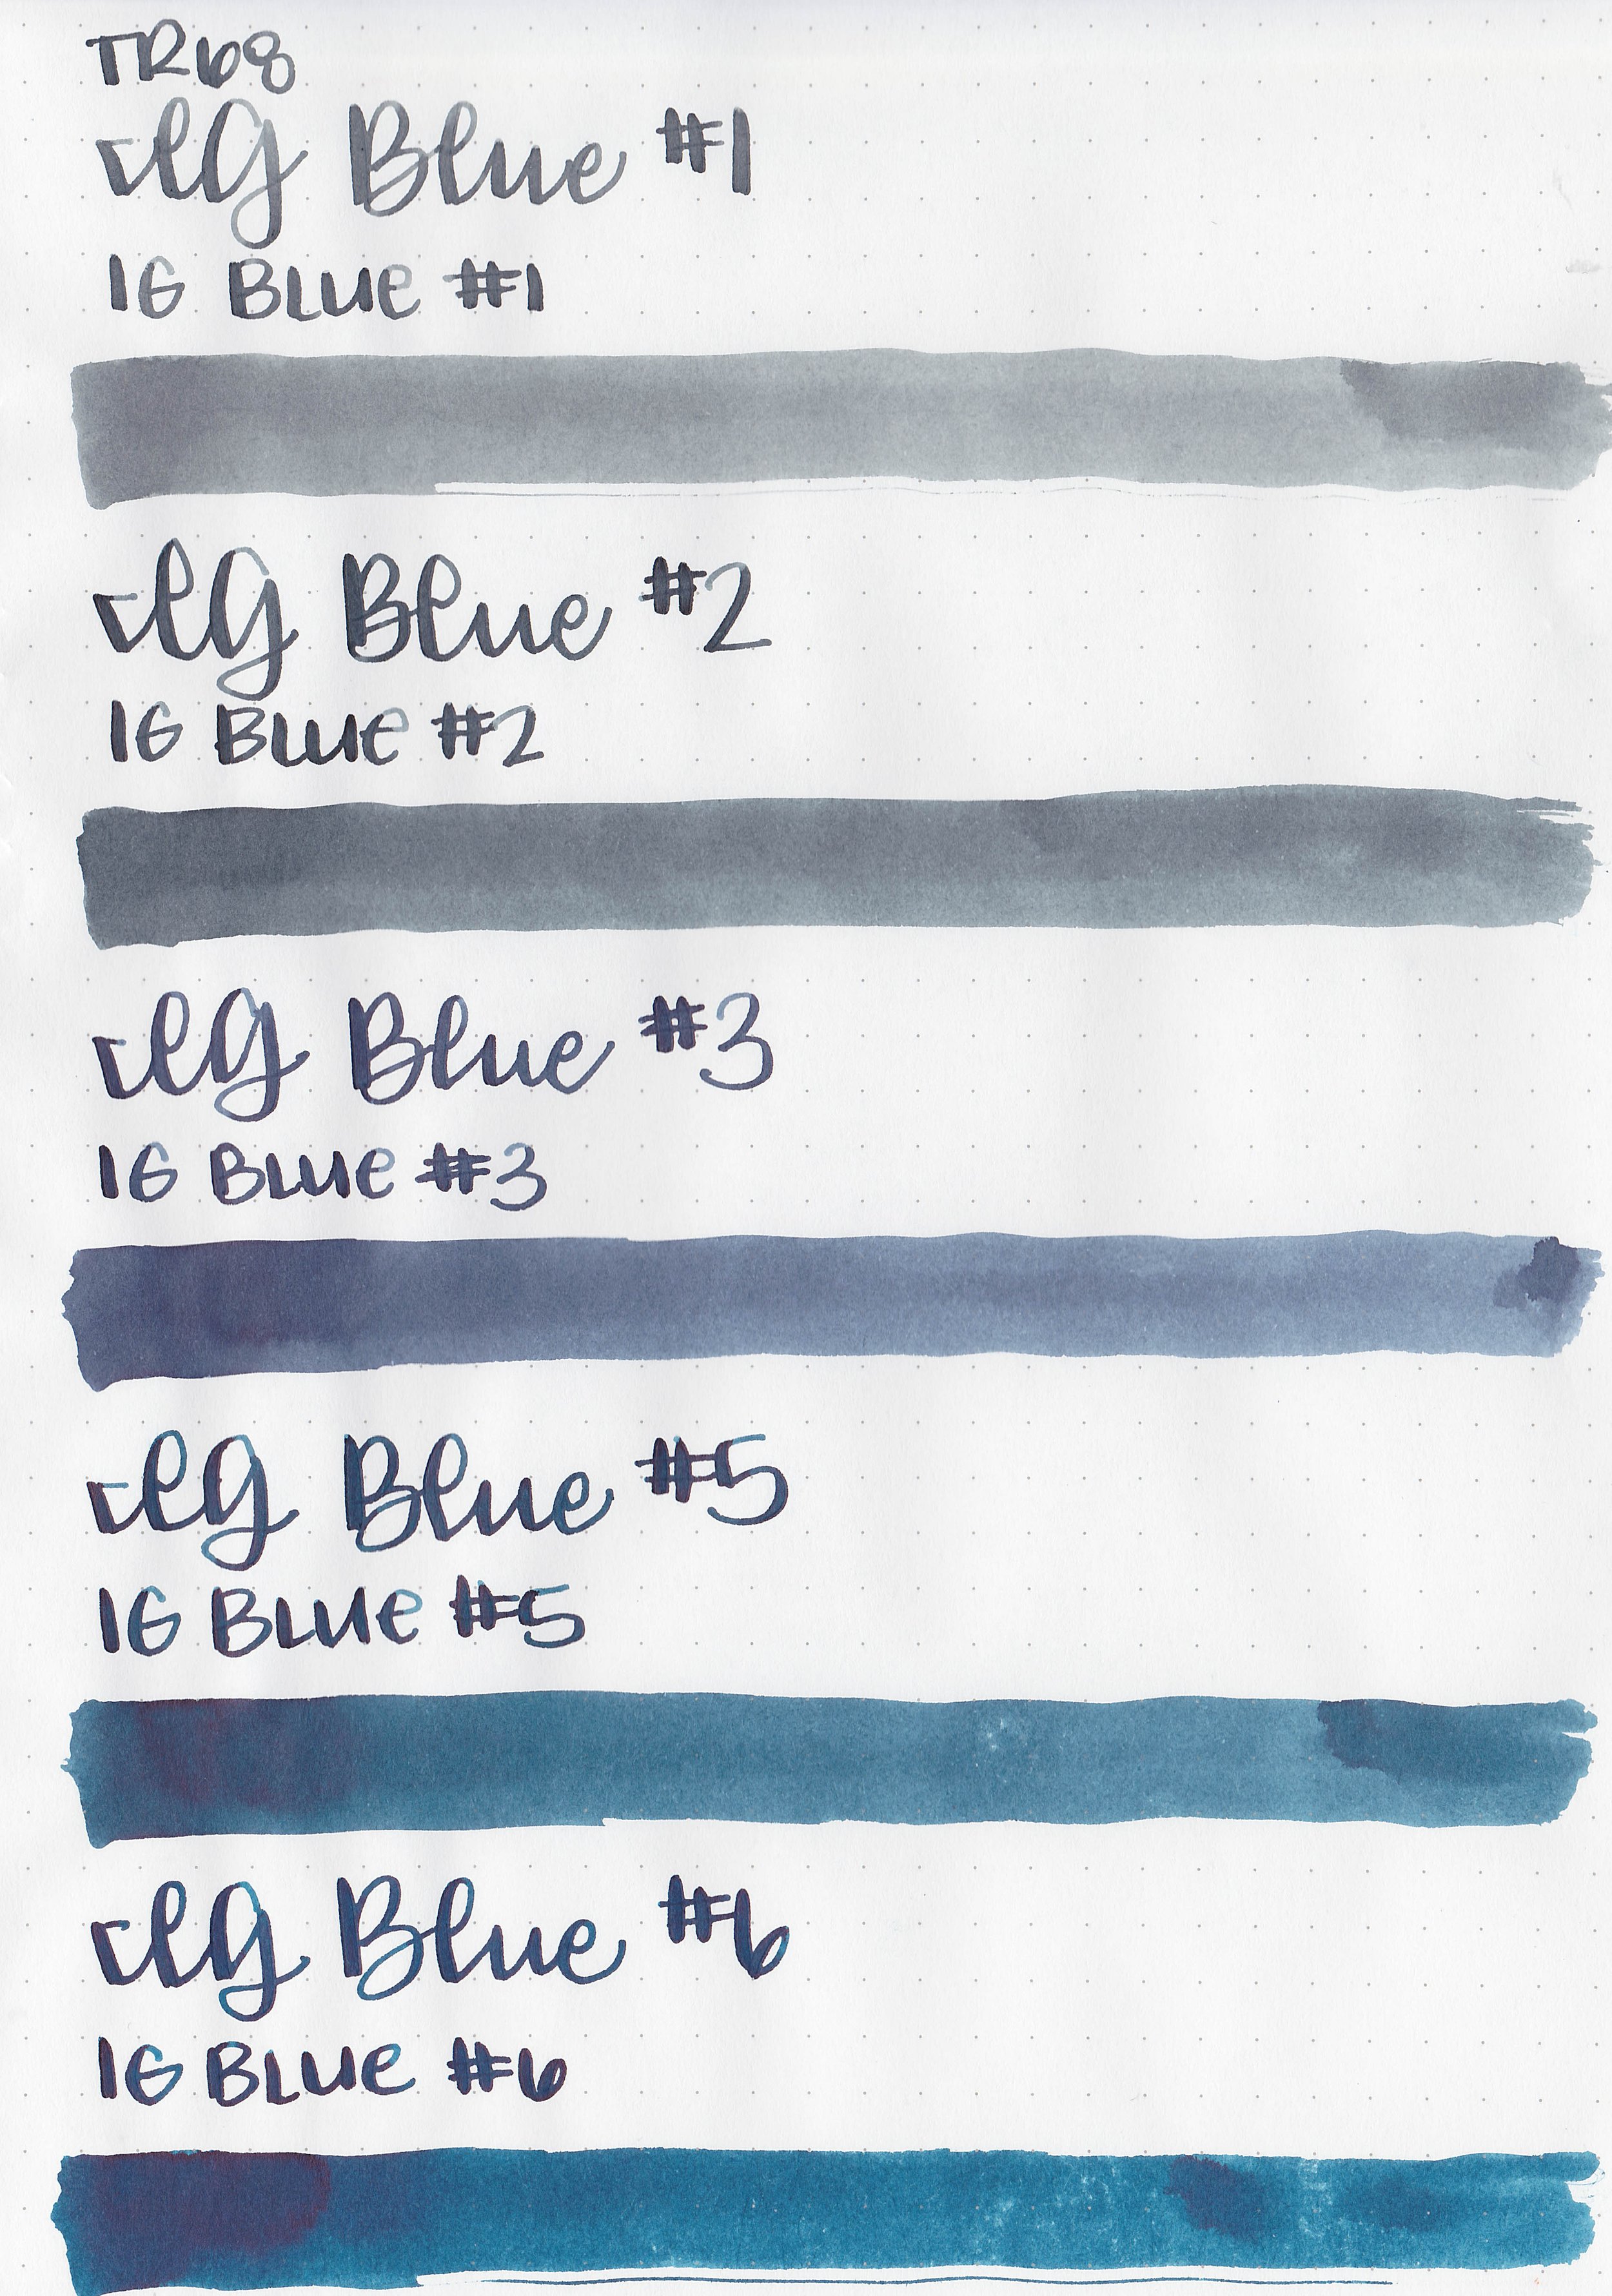 TR68
IG Blue #1
IG BLUE #1
IG Blue #2
IG BLUE #2
IG Blue #3
IG BLUE #3
IG Blue #5
IG BLUE #5
IG Blue #6
IG BLUE #6